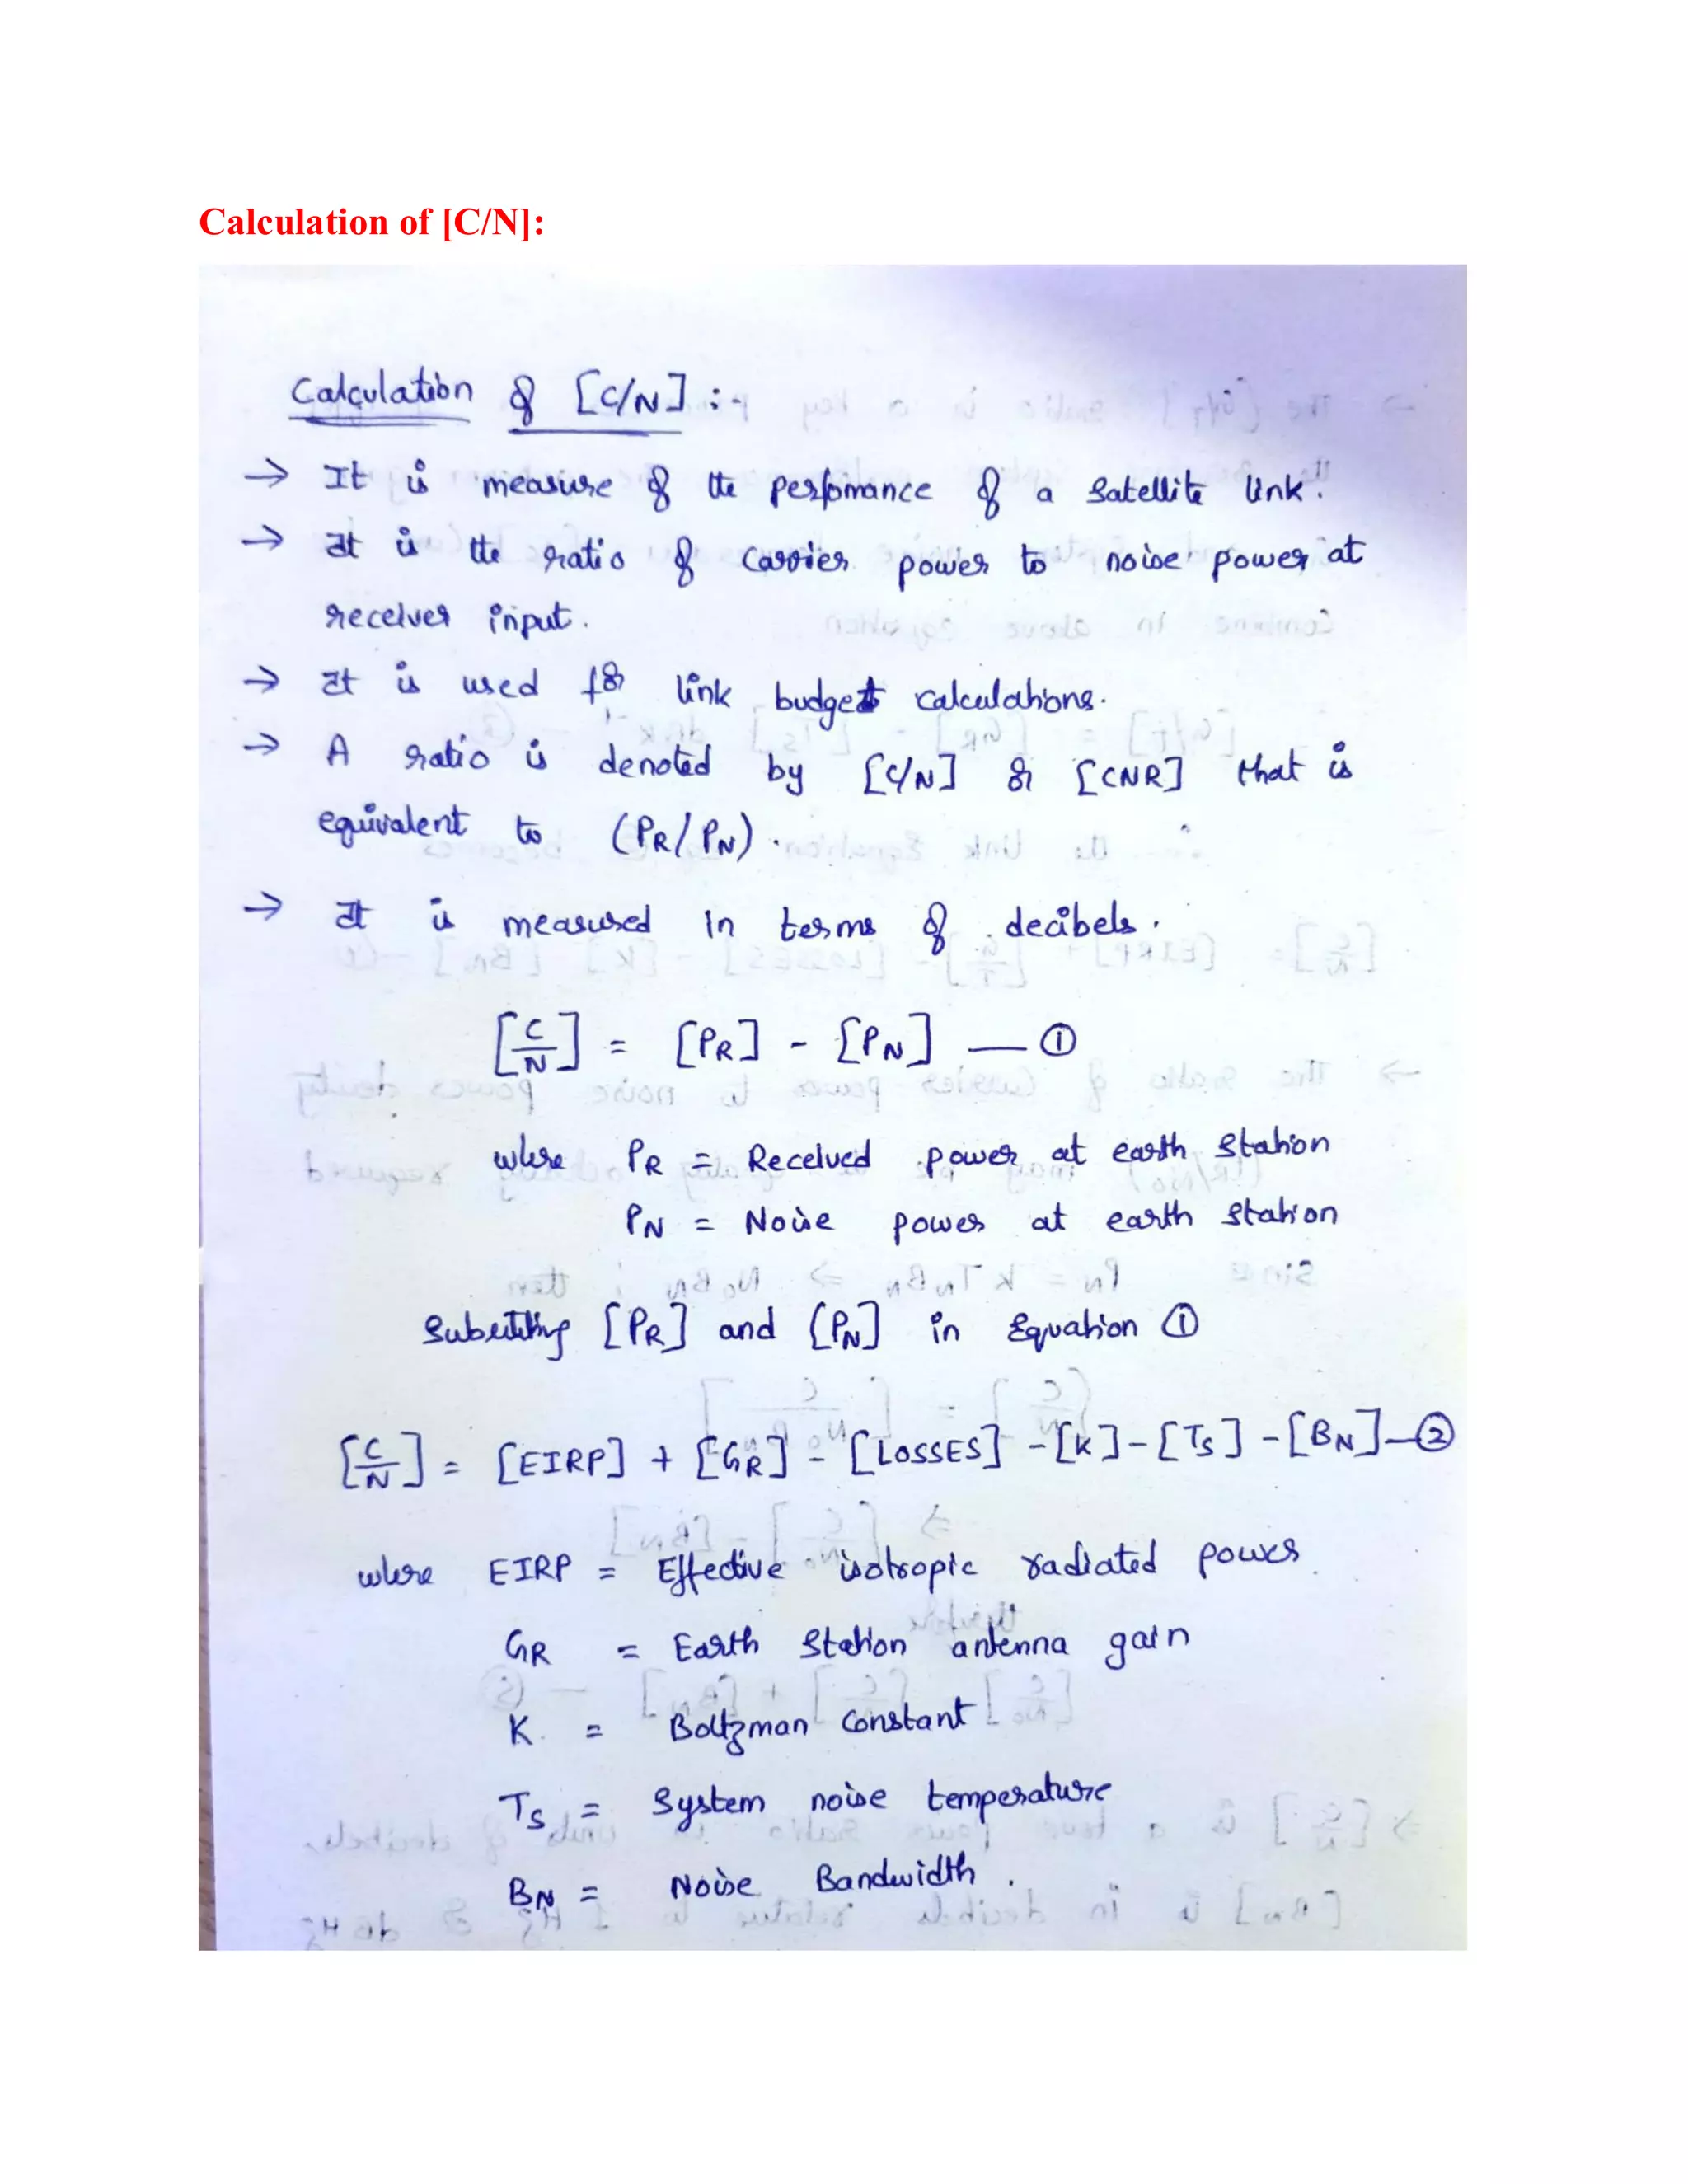 Calculation of [C/N]:
Calculation of [C/N] :-
→ It is measure of the perfomance of a satellite link.
→ It is the ratio of carrier power to noise power at
receiver input.
→ It is used for link budget calculations.
→ A ratio is denoted by [C/N] or [CNR] that is
equivalent to (PR/PN).
→ It is measured in terms of decibels.
[C/N] = [PR] - [PN] — ①
where PR = Received power at earth station
PN = Noise power at earth station
[PR] and [PN] in Equation ①
[C/N] = [EIRP] + [GR] - [LOSSES] - [K] - [TS] - [BN] — ②
where EIRP = Effective isotropic radiated power
GR = Earth station antenna gain
K = Boltzman constant
TS = System noise temperature
BN = Noise Bandwidth.